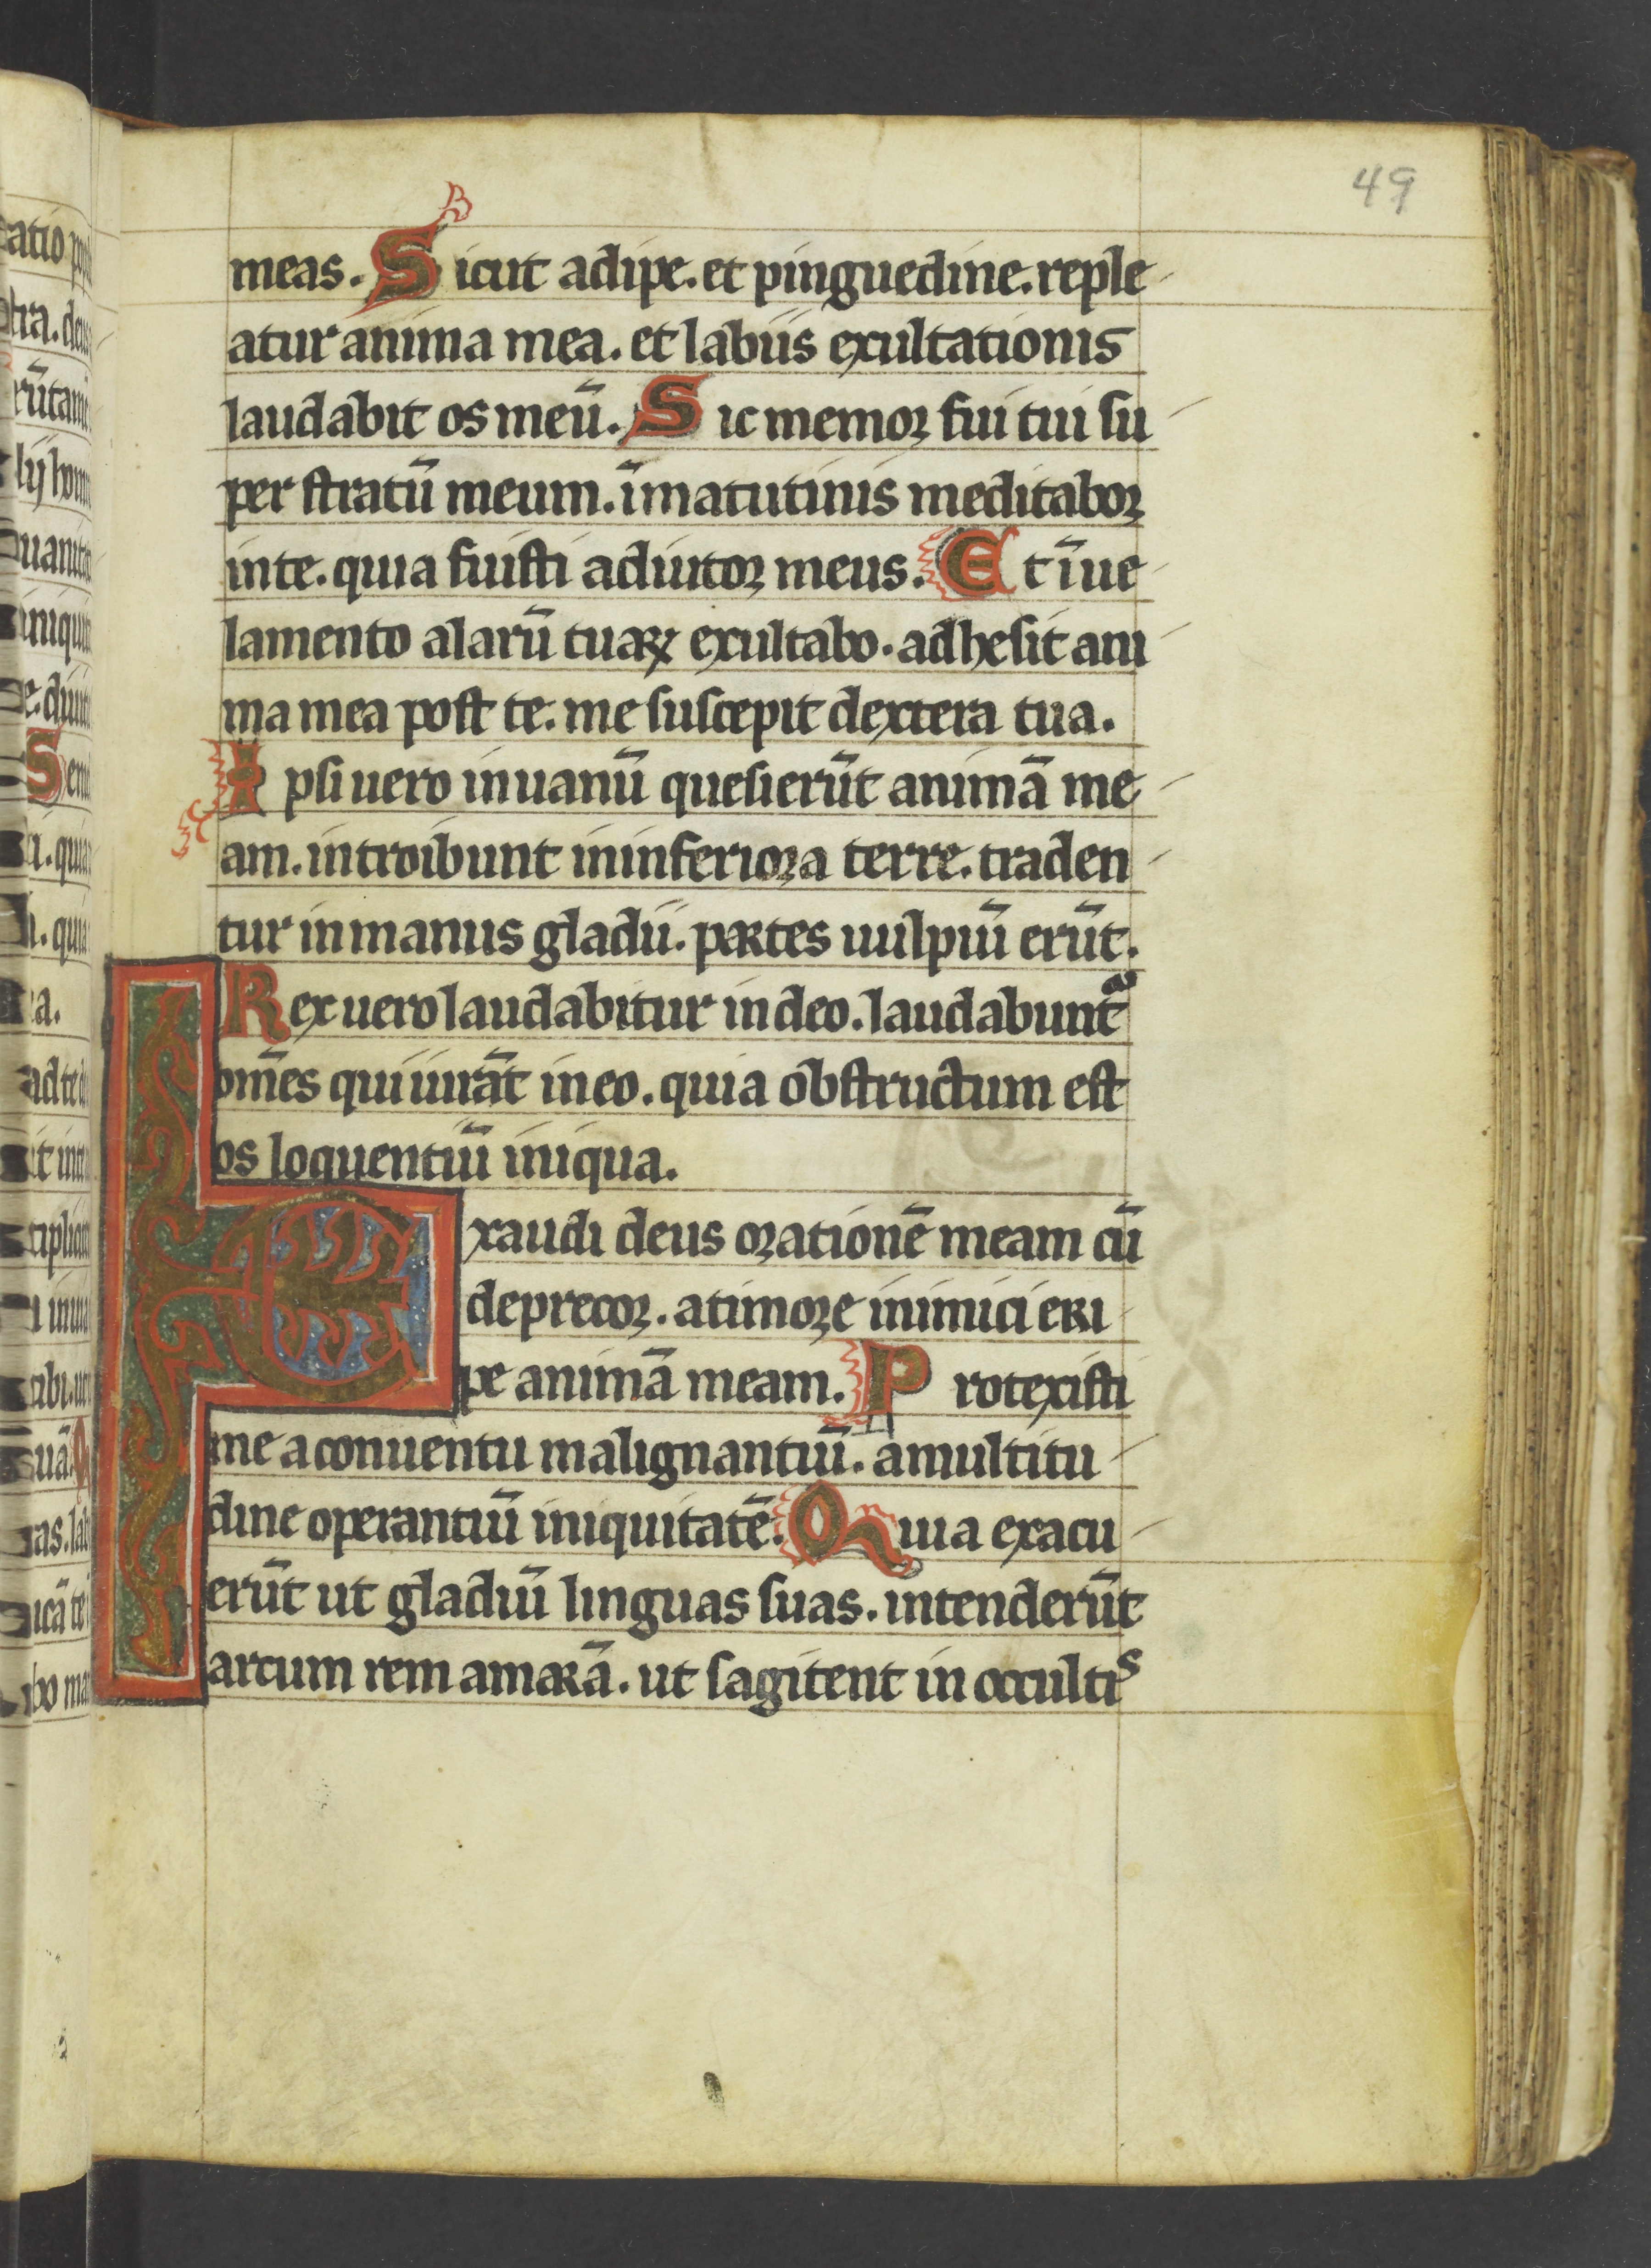 49
meas. Sicut adipe. et pinguedine. reple
atur anima mea. et labiis exultationis
laudabit os meū. Sic memor fui tui su
per stratū meum. īmatutinis meditabor
inte. quia fuisti adiutor meus. Et īue
lamento alarū tuaꝝ exultabo. adhesit ani
ma mea post te. me suscepit dextera tua.
Ipsi uero inuanū quesierūt animā me
am. introibunt ininferiora terre. traden
tur inmanus gladii. partes uulpiū erūt.
Rex uero laudabitur in deo. laudabuntᷓ
om̄es qui iurāt in eo. quia obstructum est
os loquentiū iniqua.
Exaudi deus orationē meam cū
deprecor. atimore inimici eri
pe animā meam. Protexisti
me aconuentu malignantiū. amultitu
dine operantiū iniquitatē. Quia exacu
erūt ut gladiū linguas suas. intenderūt
arcum rem amarā. ut sagitent in occultis